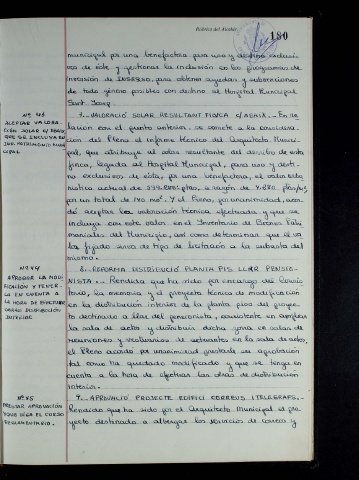 Rúbrica del Alcalde
180
municipal por una benefactora para uso y destino exclusi-
vos de éste y gestionar la inclusión en los programas de
inversión de INSERSO, para obtener ayudas y subvenciones
de todo género posibles con destino al Hospital Municipal
Sant Josep.
Nº 43
ACEPTAR VALORA-
CIÓN SOLAR C/
QUE SE INCLUYA EN
INV. PATRIMONIO MUNI-
CIPAL
7.- VALORACIÓ SOLAR RESULTANT FINCA C/ .- En re-
lación con el punto anterior, se somete a la considera-
ción del Pleno el informe técnico del Arquitecto Munici-
pal, que atribuye al solar resultante del derribo de esta
finca, legada al Hospital Municipal, para uso y desti-
no exclusivos de ésta, por una benefactora, el valor
actual de ptas, a razón de ptas/m²,
por un total de 140 m². Y el Pleno, por unanimidad, acor-
dó aceptar la valoración técnica efectuada y que se
incluya con este valor en el Inventario de Bienes Patri-
moniales del Municipio, así como determinar que el va-
lor fijado sirva de tipo de licitación a la subasta del
mismo.
Nº 44
APROBAR LA MODI-
FICACIÓN Y TENER-
LA EN CUENTA A
LA HORA DE EFECTUAR
OBRAS DISTRIBUCIÓN
INTERIOR
8.- REFORMA DISTRIBUCIÓ PLANTA PIS LLAR PENSIO-
NISTA.- Rendida que ha sido por encargo del Consis-
torio, la memoria y el proyecto técnico de modificación
en la distribución interior de la planta piso del proyec-
to destinado a llar del pensionista, consistente en ampliar
la sala de actos y distribuir dicha zona en salas de
reuniones y vestuarios de actuantes en la sala de actos,
el Pleno acordó por unanimidad prestarle su aprobación
tal como ha quedado modificado y que se tenga en
cuenta a la hora de efectuar las obras de distribución
interior.
Nº 45
PRESTAR APROBACIÓN
Y QUE SIGA EL CURSO
REGLAMENTARIO
9.- APROVACIÓ PROJECTE EDIFICI CORREUS I TELEGRAFS.-
Rendido que ha sido por el Arquitecto Municipal el pro-
yecto destinado a albergar los servicios de correos y